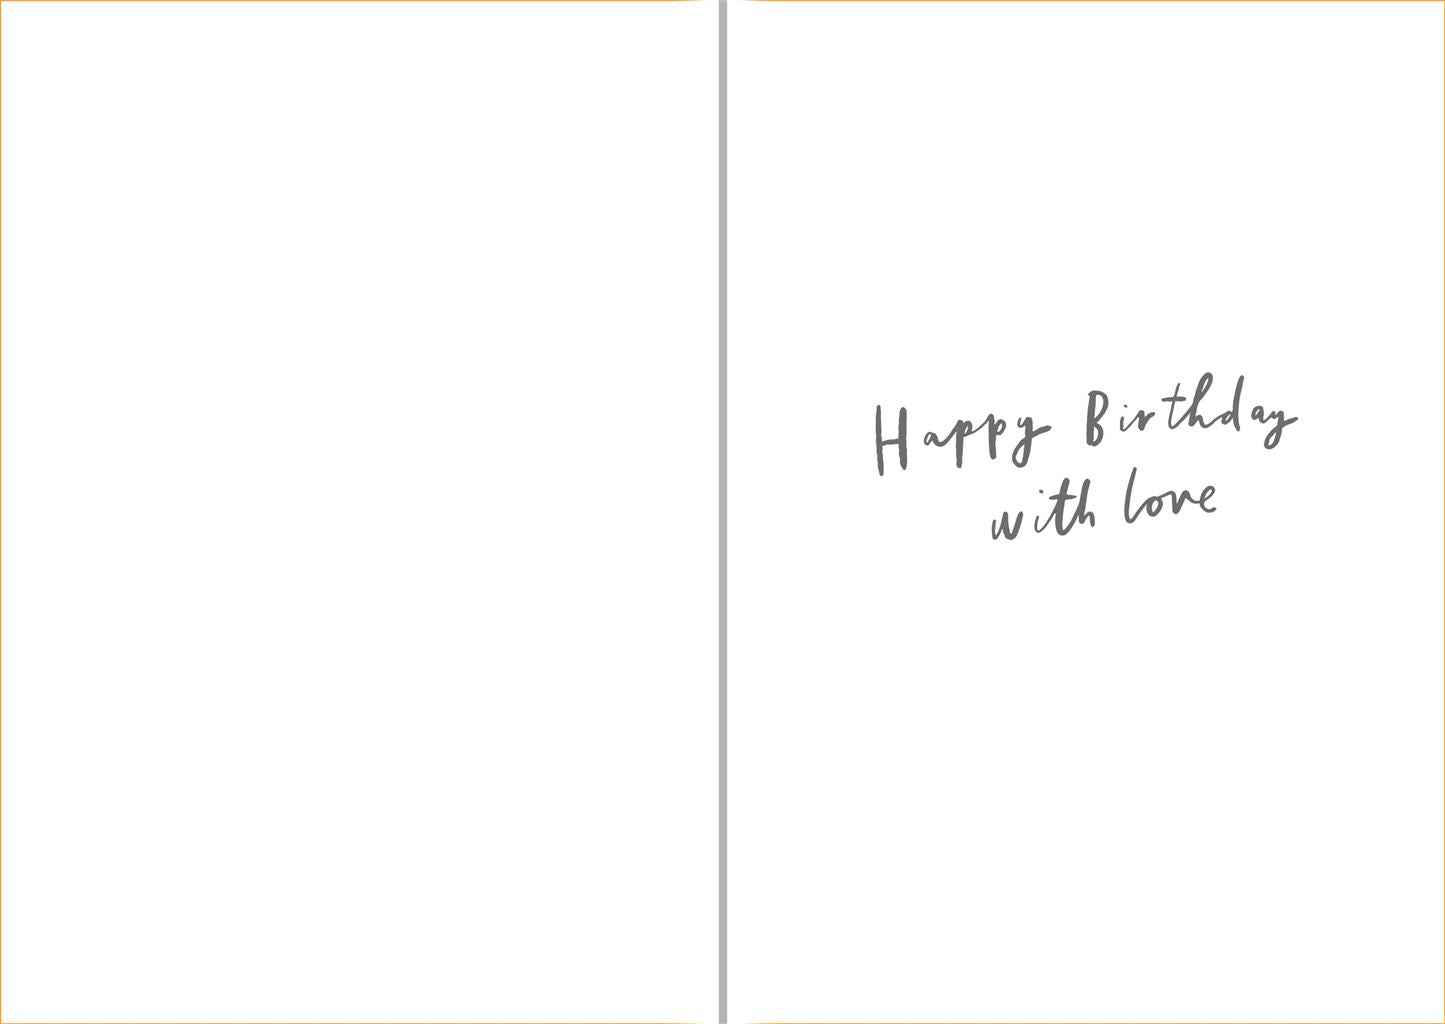 Happy Birthday
with love